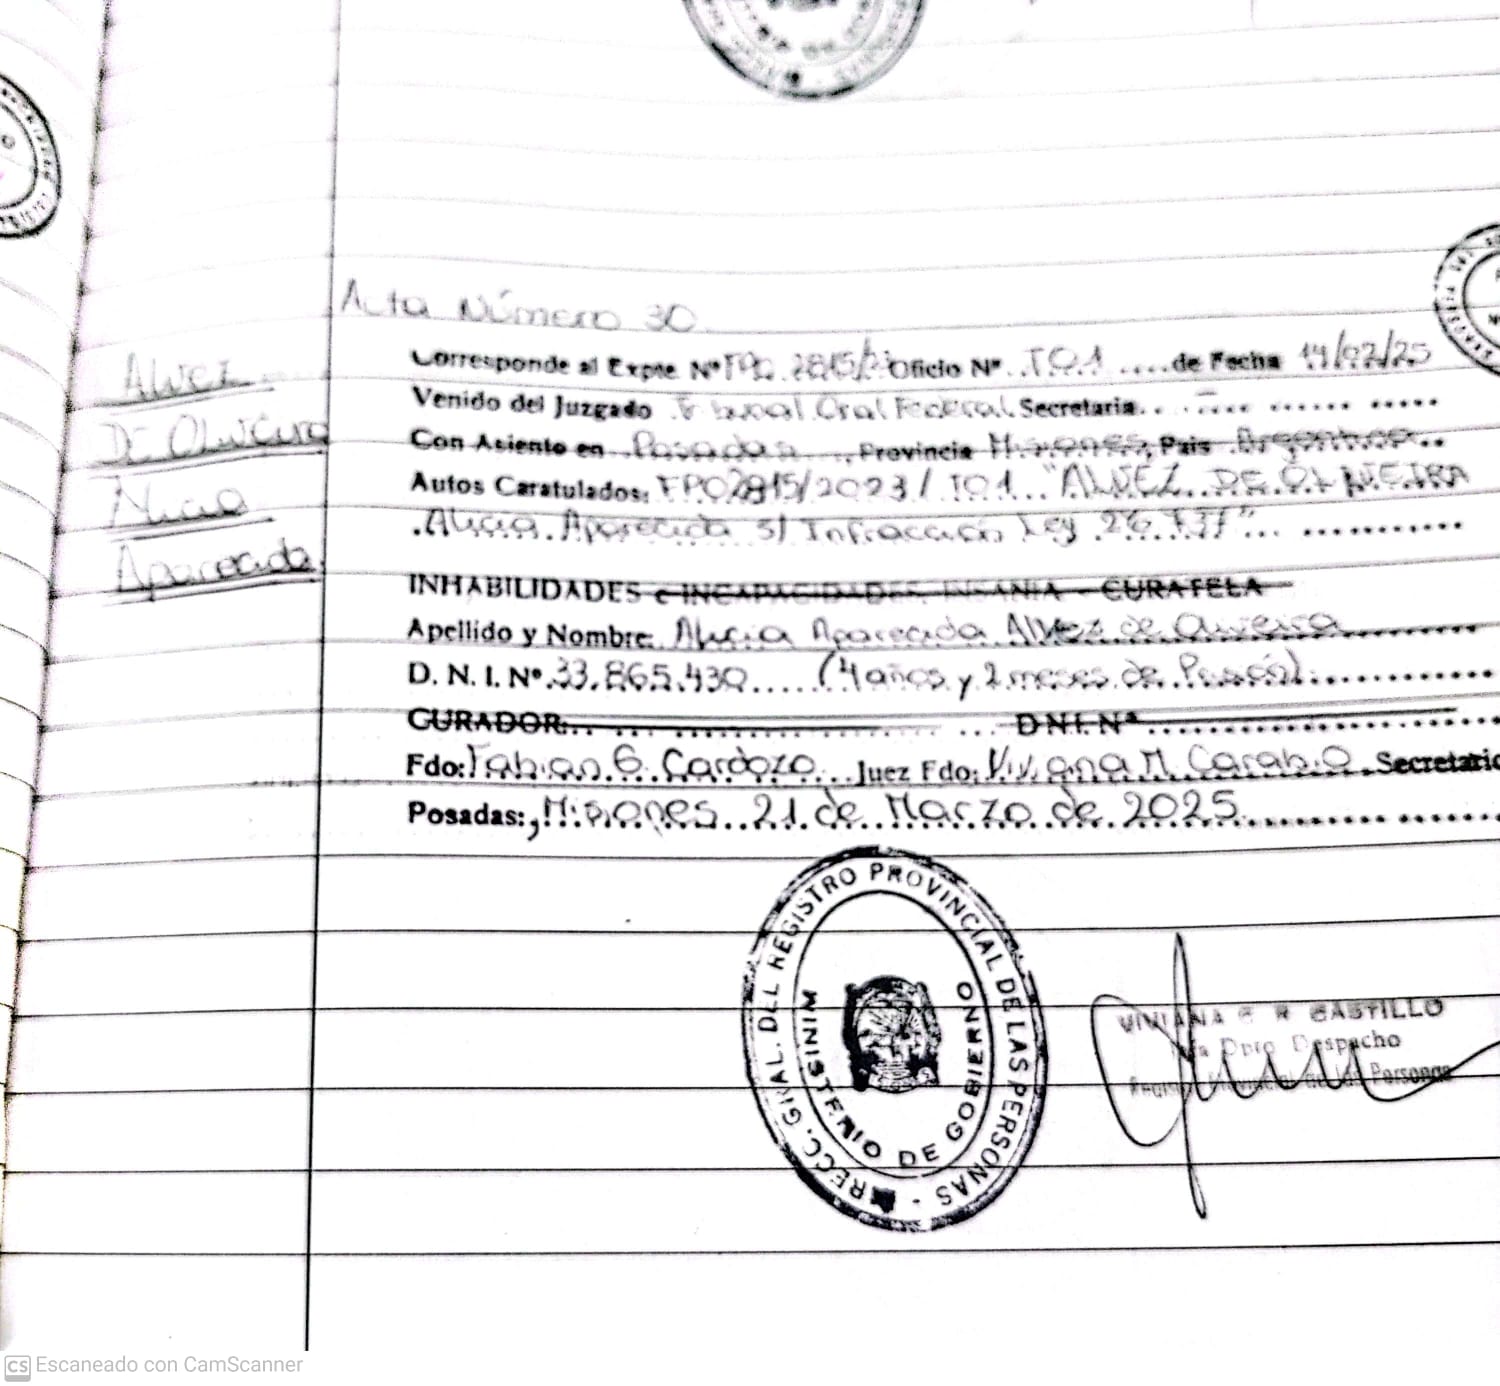 Acta Número 30
Alvez
De Oliveira
Alicia
Aparecida
Corresponde al Expte Nº FPO 2815/2 Oficio Nº ..TO1 .....de Fecha 14/02/25
Venido del Juzgado Tribunal Oral Federal Secretaria.. - ... ...... .....
Con Asiento en ..Posadas.. ., Provincia Misiones, Pais Argentina..
Autos Caratulados: FPO2815/2023/TO1 "ALVEZ DE OLIVEIRA
.Alicia. Aparecida s/ Infracción Ley 26.737"... ...........
INHABILIDADES e INCAPACIDADES, INSANIA - CURATELA
Apellido y Nombre: Alicia Aparecida Alvez de Oliveira
D. N. I. Nº.33.865.430..... (4 años y 2 meses de Prisión)..............
CURADOR:............ D.N.I. Nº..............
Fdo: Fabian G. Cardozo... Juez Fdo: Viviana M. Carabio Secretario
Posadas:, Misiones..21.de..Marzo.de.2025..................
DIRECC. GRAL. DEL REGISTRO PROVINCIAL DE LAS PERSONAS -
MINISTERIO DE GOBIERNO
VIVIANA R CASTILLO
Dpto Despacho
Provincial de las Personas
CS Escaneado con CamScanner